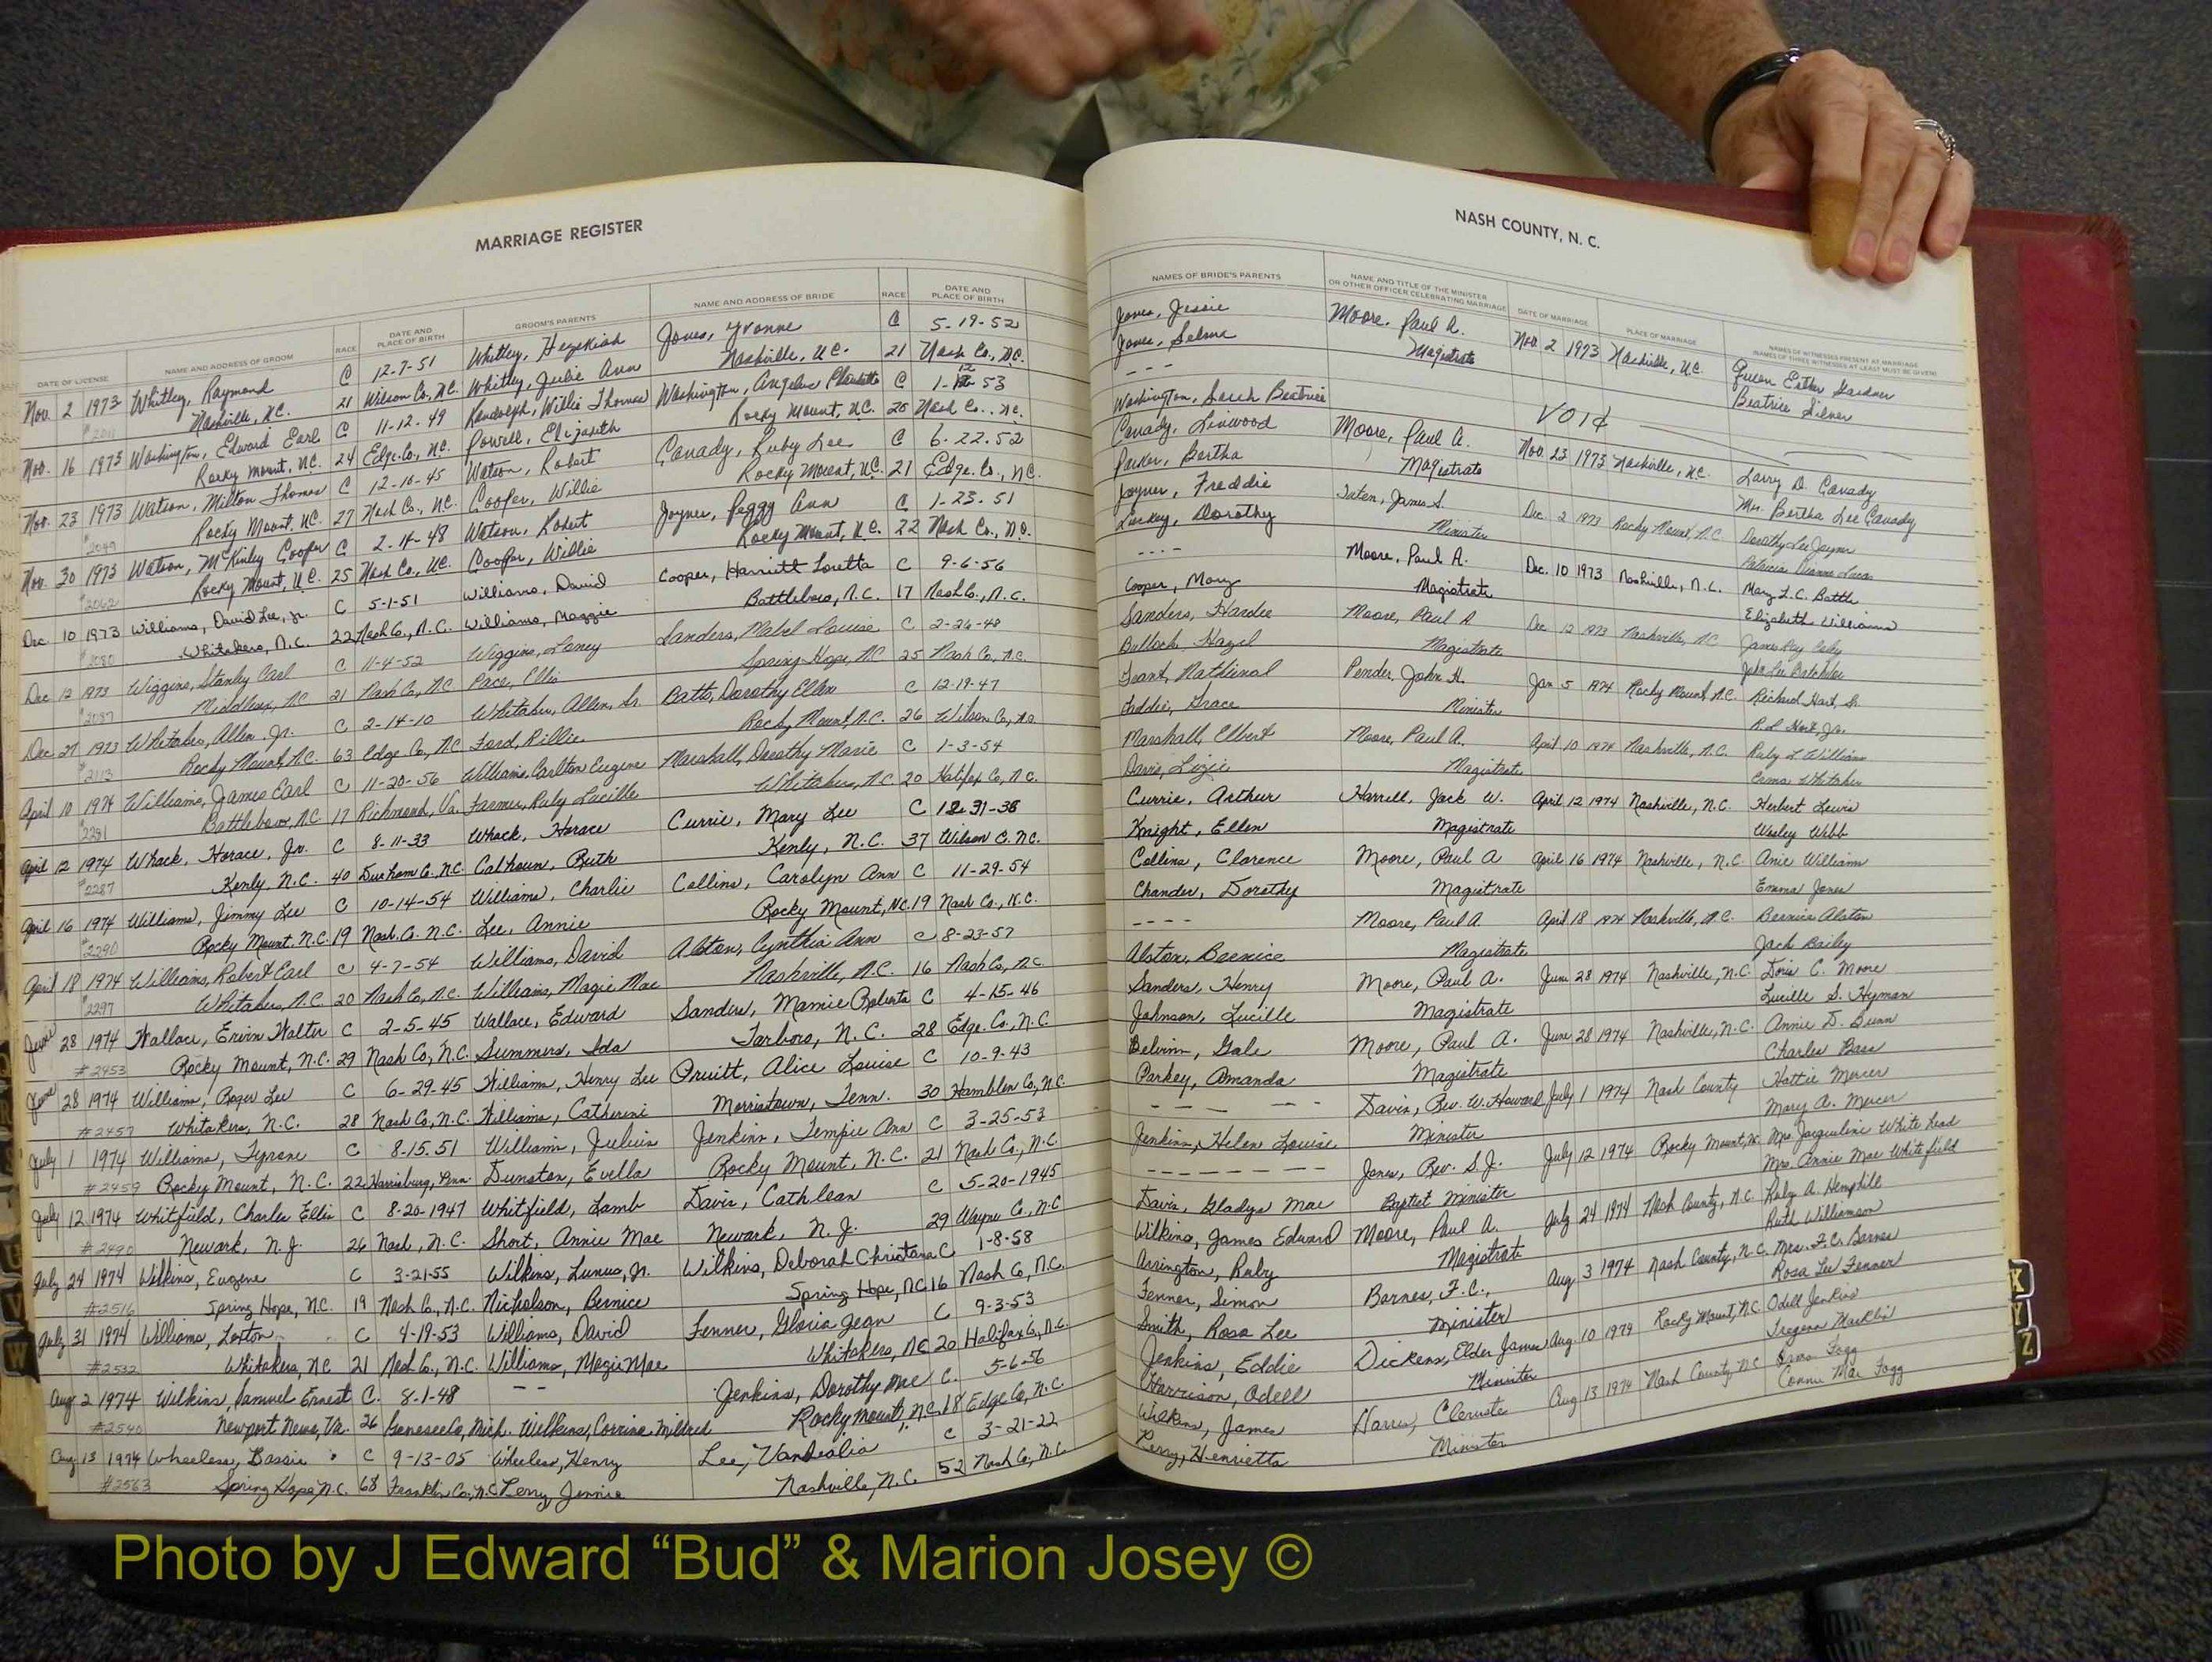 MARRIAGE REGISTER
DATE OF LICENSE NAME AND ADDRESS OF GROOM RACE DATE AND PLACE OF BIRTH GROOM'S PARENTS NAME AND ADDRESS OF BRIDE RACE DATE AND PLACE OF BIRTH
Nov. 2 1973 Whitley, Raymond C 12-7-51 Whitley, Hezekiah Jones, Yvonne C 5-19-52
Nashville, N.C. 21 Wilson Co, N.C. Whitley, Julie Ann Nashville, N.C. 21 Nash Co., N.C.
Nov. 16 1973 Washington, Edward Earl C 11-12-49 Randolph, Willie Thomas Washington, Angelia C 1-12-53
Rocky Mount, N.C. 24 Edge. Co, N.C. Powell, Elizabeth Rocky Mount, N.C. 20 Nash Co., N.C.
Nov. 23 1973 Watson, Milton Thomas C 12-16-45 Watson, Robert Canady, Ruby Lee C 6-22-52
#2049 Rocky Mount, N.C. 27 Nash Co., N.C. Cooper, Willie Rocky Mount, N.C. 21 Edge. Co., N.C.
Nov. 30 1973 Watson, McKinley Cooper C 2-14-48 Watson, Robert Joyner, Peggy Ann C 1-23-51
#2062 Rocky Mount, N.C. 25 Nash Co., N.C. Cooper, Willie Rocky Mount, N.C. 22 Nash Co., N.C.
Dec. 10 1973 Williams, David Lee, Jr. C 5-1-51 Williams, David Cooper, Harriett Loretta C 9-6-56
#2080 Whitakers, N.C. 22 Nash Co., N.C. Williams, Maggie Battleboro, N.C. 17 Nash Co., N.C.
Dec 12 1973 Wiggins, Stanley Earl C 11-4-52 Wiggins, Laney Sanders, Mabel Louise C 2-26-48
#2087 Middlesex, NC 21 Nash Co, NC Pace, Ellis Spring Hope, NC 25 Nash Co, N.C.
Dec 27 1973 Whitaker, Allen Jr. C 2-14-10 Whitaker, Allen, Sr. Batts, Dorothy Ellen C 12-19-47
#2113 Rocky Mount, N.C. 63 Edge Co, NC Ford, Rillie Rocky Mount N.C. 26 Wilson Co, N.C.
April 10 1974 Williams, James Earl C 11-20-56 Williams, Carlton Eugene Marshall, Dorothy Marie C 1-3-54
#2281 Battleboro, NC 17 Richmond, Va. Farmer, Ruby Lucille Whitakers, N.C. 20 Halifax Co, N.C.
April 12 1974 Whack, Horace, Jr. C 8-11-33 Whack, Horace Currie, Mary Lee C 12-31-36
#2287 Kenly, N.C. 40 Durham Co. N.C. Calhoun, Ruth Kenly, N.C. 37 Wilson C. N.C.
April 16 1974 Williams, Jimmy Lee C 10-14-54 Williams, Charlie Collins, Carolyn Ann C 11-29-54
#2290 Rocky Mount, N.C. 19 Nash Co. N.C. Lee, Annie Rocky Mount, N.C. 19 Nash Co., N.C.
April 18 1974 Williams, Robert Earl C 4-7-54 Williams, David Alston, Cynthia Ann C 8-23-57
#2297 Whitakers, N.C. 20 Nash Co, N.C. Williams, Magie Mae Nashville, N.C. 16 Nash Co, N.C
June 28 1974 Wallace, Ervin Walter C 2-5-45 Wallace, Edward Sanders, Mamie Roberta C 4-15-46
#2453 Rocky Mount, N.C. 29 Nash Co, N.C. Summers, Ida Tarboro, N.C. 28 Edge. Co, N.C.
June 28 1974 Williams, Roger Lee C 6-29-45 Williams, Henry Lee Pruitt, Alice Louise C 10-9-43
#2457 Whitakers, N.C. 28 Nash Co, N.C. Williams, Catherine Morristown, Tenn. 30 Hamblen Co, N.C.
July 1 1974 Williams, Tyrone C 8-15-51 Williams, Julius Jenkins, Tempie Ann C 3-25-53
#2459 Rocky Mount, N.C. 22 Harrisburg, Penn. Dunston, Evella Rocky Mount, N.C. 21 Nash Co, N.C.
July 12 1974 Whitfield, Charles Ellis C 8-20-1947 Whitfield, Lamb Davis, Cathlean C 5-20-1945
#2490 Newark, N.J. 26 Nash, N.C. Short, Annie Mae Newark, N.J. 29 Wayne Co, N.C
July 24 1974 Wilkins, Eugene C 3-21-55 Wilkins, Lunus, Jr. Wilkins, Deborah Christana C 1-8-58
#2516 Spring Hope, N.C. 19 Nash Co, N.C. Nicholson, Bernice Spring Hope, NC 16 Nash Co, N.C.
July 31 1974 Williams, Loxton C 4-19-53 Williams, David Fenner, Gloria Jean C 9-3-53
#2532 Whitakers, NC 21 Nash Co., N.C. Williams, Magie Mae Whitakers, NC 20 Halifax Co, N.C.
Aug 2 1974 Wilkins, Samuel Ernest C. 8-1-48 -- Jenkins, Dorothy Mae C. 5-6-56
#2540 Newport News, Va. 26 Genesee Co, Mich. Wilkins, Corrine Mildred Rocky Mount, N.C. 18 Edge Co, N.C.
Aug 13 1974 Wheeless, Bassie C 9-13-05 Wheeless, Henry Lee, Vandealia C 3-21-22
#2563 Spring Hope N.C. 68 Franklin Co, N.C Perry, Jennie Nashville, N.C. 52 Nash Co, N.C
NASH COUNTY, N. C.
NAMES OF BRIDE'S PARENTS NAME AND TITLE OF THE MINISTER OR OTHER OFFICER CELEBRATING MARRIAGE DATE OF MARRIAGE PLACE OF MARRIAGE NAMES OF WITNESSES PRESENT AT MARRIAGE (NAMES OF THREE WITNESSES AT LEAST MUST BE GIVEN)
Jones, Jessie Moore, Paul A. Nov. 2 1973 Nashville, N.C. Queen Esther Gardner
Jones, Selma Magistrate Beatrice Silver
---
Washington, Sarah Beatrice VOID
Canady, Linwood Moore, Paul A. Nov. 23 1973 Nashville, N.C. Larry D. Canady
Parker, Bertha Magistrate Mrs. Bertha Lee Canady
Joyner, Freddie Taten, James S. Dec. 2 1973 Rocky Mount, N.C. Dorothy Lee Joyner
Luckey, Dorothy Minister Patricia Dianne Lucas
---- Moore, Paul A. Dec. 10 1973 Nashville, N.C. Mary L.C. Battle
Cooper, Mary Magistrate Elizabeth Williams
Sanders, Hardee Moore, Paul A Dec 12 1973 Nashville, NC James Ray
Bullock, Hazel Magistrate John Lee Batchelor
Nathanial Pender, John H. Jan 5 1974 Rocky Mount, N.C. Richard Hart, Sr.
Grace Minister R.L. Hart, Jr.
Marshall, Elbert Moore, Paul A. April 10 1974 Nashville, N.C. Ruby L Williams
Davis, Lizie Magistrate Erma Whitaker
Currie, Arthur Harrell, Jack W. April 12 1974 Nashville, N.C. Herbert Lewis
Knight, Ellen Magistrate Wesley Webb
Collins, Clarence Moore, Paul A April 16 1974 Nashville, N.C. Anie William
Chander, Dorothy Magistrate Emma Jones
---- Moore, Paul A. April 18 1974 Nashville, N.C. Bernice Alston
Alston, Bernice Magistrate Jack Bailey
Sanders, Henry Moore, Paul A. June 28 1974 Nashville, N.C Doris C. Moore
Johnson, Lucille Magistrate Lucille S. Hyman
Belvinn, Gale Moore, Paul A. June 28 1974 Nashville, N.C. Annie D. Bunn
Parkey, Amanda Magistrate Charles Bass
---- Davis, Rev. W. Howard July 1 1974 Nash County Hattie Mercer
Jenkins, Helen Louise Minister Mary A. Mercer
------- Jones, Rev. S.J. July 12 1974 Rocky Mount, N. Mrs. Jacqueline White head
Davis, Gladys Mae Baptist Minister Mrs. Annie Mae Whitefield
Wilkins, James Edward Moore, Paul A. July 24 1974 Nash County, N.C. Ruby A. Hemphill
Arrington, Ruby Magistrate Ruth Williamson
Fenner, Simon Barnes, F.C., Aug 3 1974 Nash County, N.C. Mrs. F.C. Barnes
Smith, Rosa Lee Minister Rosa Lee Fenner
Jenkins, Eddie Dickens, Elder James Aug. 10 1974 Rocky Mount, NC. Odell Jenkins
Harrison, Odell Minister
Wilkins, James Harris, Aug 13 1974 Nash County NC Fogg
Perry, Henrietta Minister Connie Mae Fogg
V
W
X
Y
Z
Photo by J Edward “Bud” & Marion Josey ©